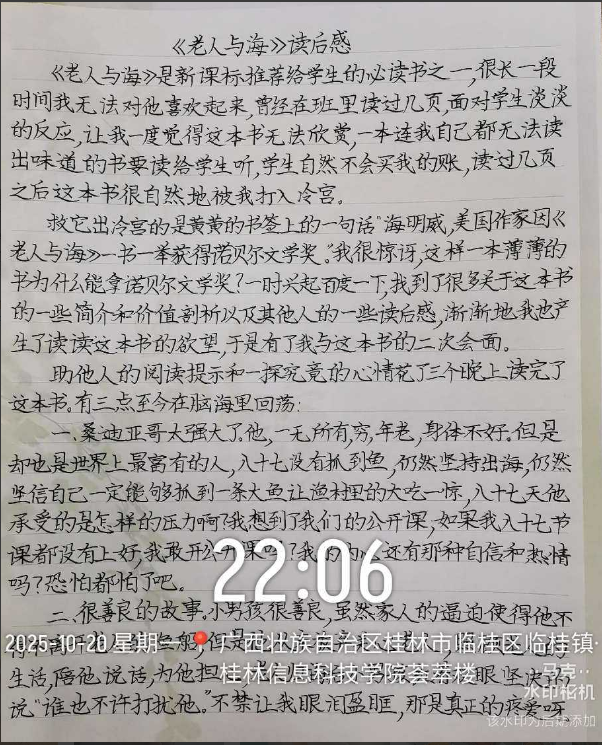 《老人与海》读后感
《老人与海》是新课标推荐给学生的必读书之一,很长一段
时间我无法对他喜欢起来,曾经在班里读过几页,面对学生淡淡
的反应,让我一度觉得这本书无法欣赏,一本连我自己都无法读
出味道的书要读给学生听,学生自然不会买我的账,读过几页
之后这本书很自然地被我打入冷宫。
救它出冷宫的是黄黄的书签上的一句话“海明威,美国作家因《
老人与海》一书一举获得诺贝尔文学奖。”我很惊讶,这样一本薄薄的
书为什么能拿诺贝尔文学奖?一时兴起百度一下,我到了很多关于这本书
的一些简介和价值剖析以及其他人的一些读后感,渐渐地我也产
生了读读这本书的欲望,于是有了我与这本书的二次会面。
助他人的阅读提示和一探究竟的心情花了三个晚上读完了
这本书。有三点至今在脑海里回荡:
一.桑迪亚哥太强大了。他,一无所有,穷,年老,身体不好。但是
却也是世界上最富有的人,八十七没有抓到鱼,仍然坚持出海,仍然
坚信自己一定能够抓到一条大鱼让渔村里的大吃一惊,八十七天他
承受的是怎样的压力啊?我想到了我们的公开课,如果我八十七节
课都没有上好,我敢开公开课吗?我的内心还有那种自信和热情
吗?恐怕都怕了吧。
22:06
二.很善良的故事。小男孩很善良,虽然家人的逼迫使得他不
2025-10-20 星期一 广西壮族自治区桂林市临桂区临桂镇·
桂林信息科技学院荟萃楼
生活,陪他说话,为他担 眼坚决的
马克
水印相机
说“谁也不许打扰他。”不禁让我眼泪盈眶,那是真正的疼爱呀
该水印为后续添加